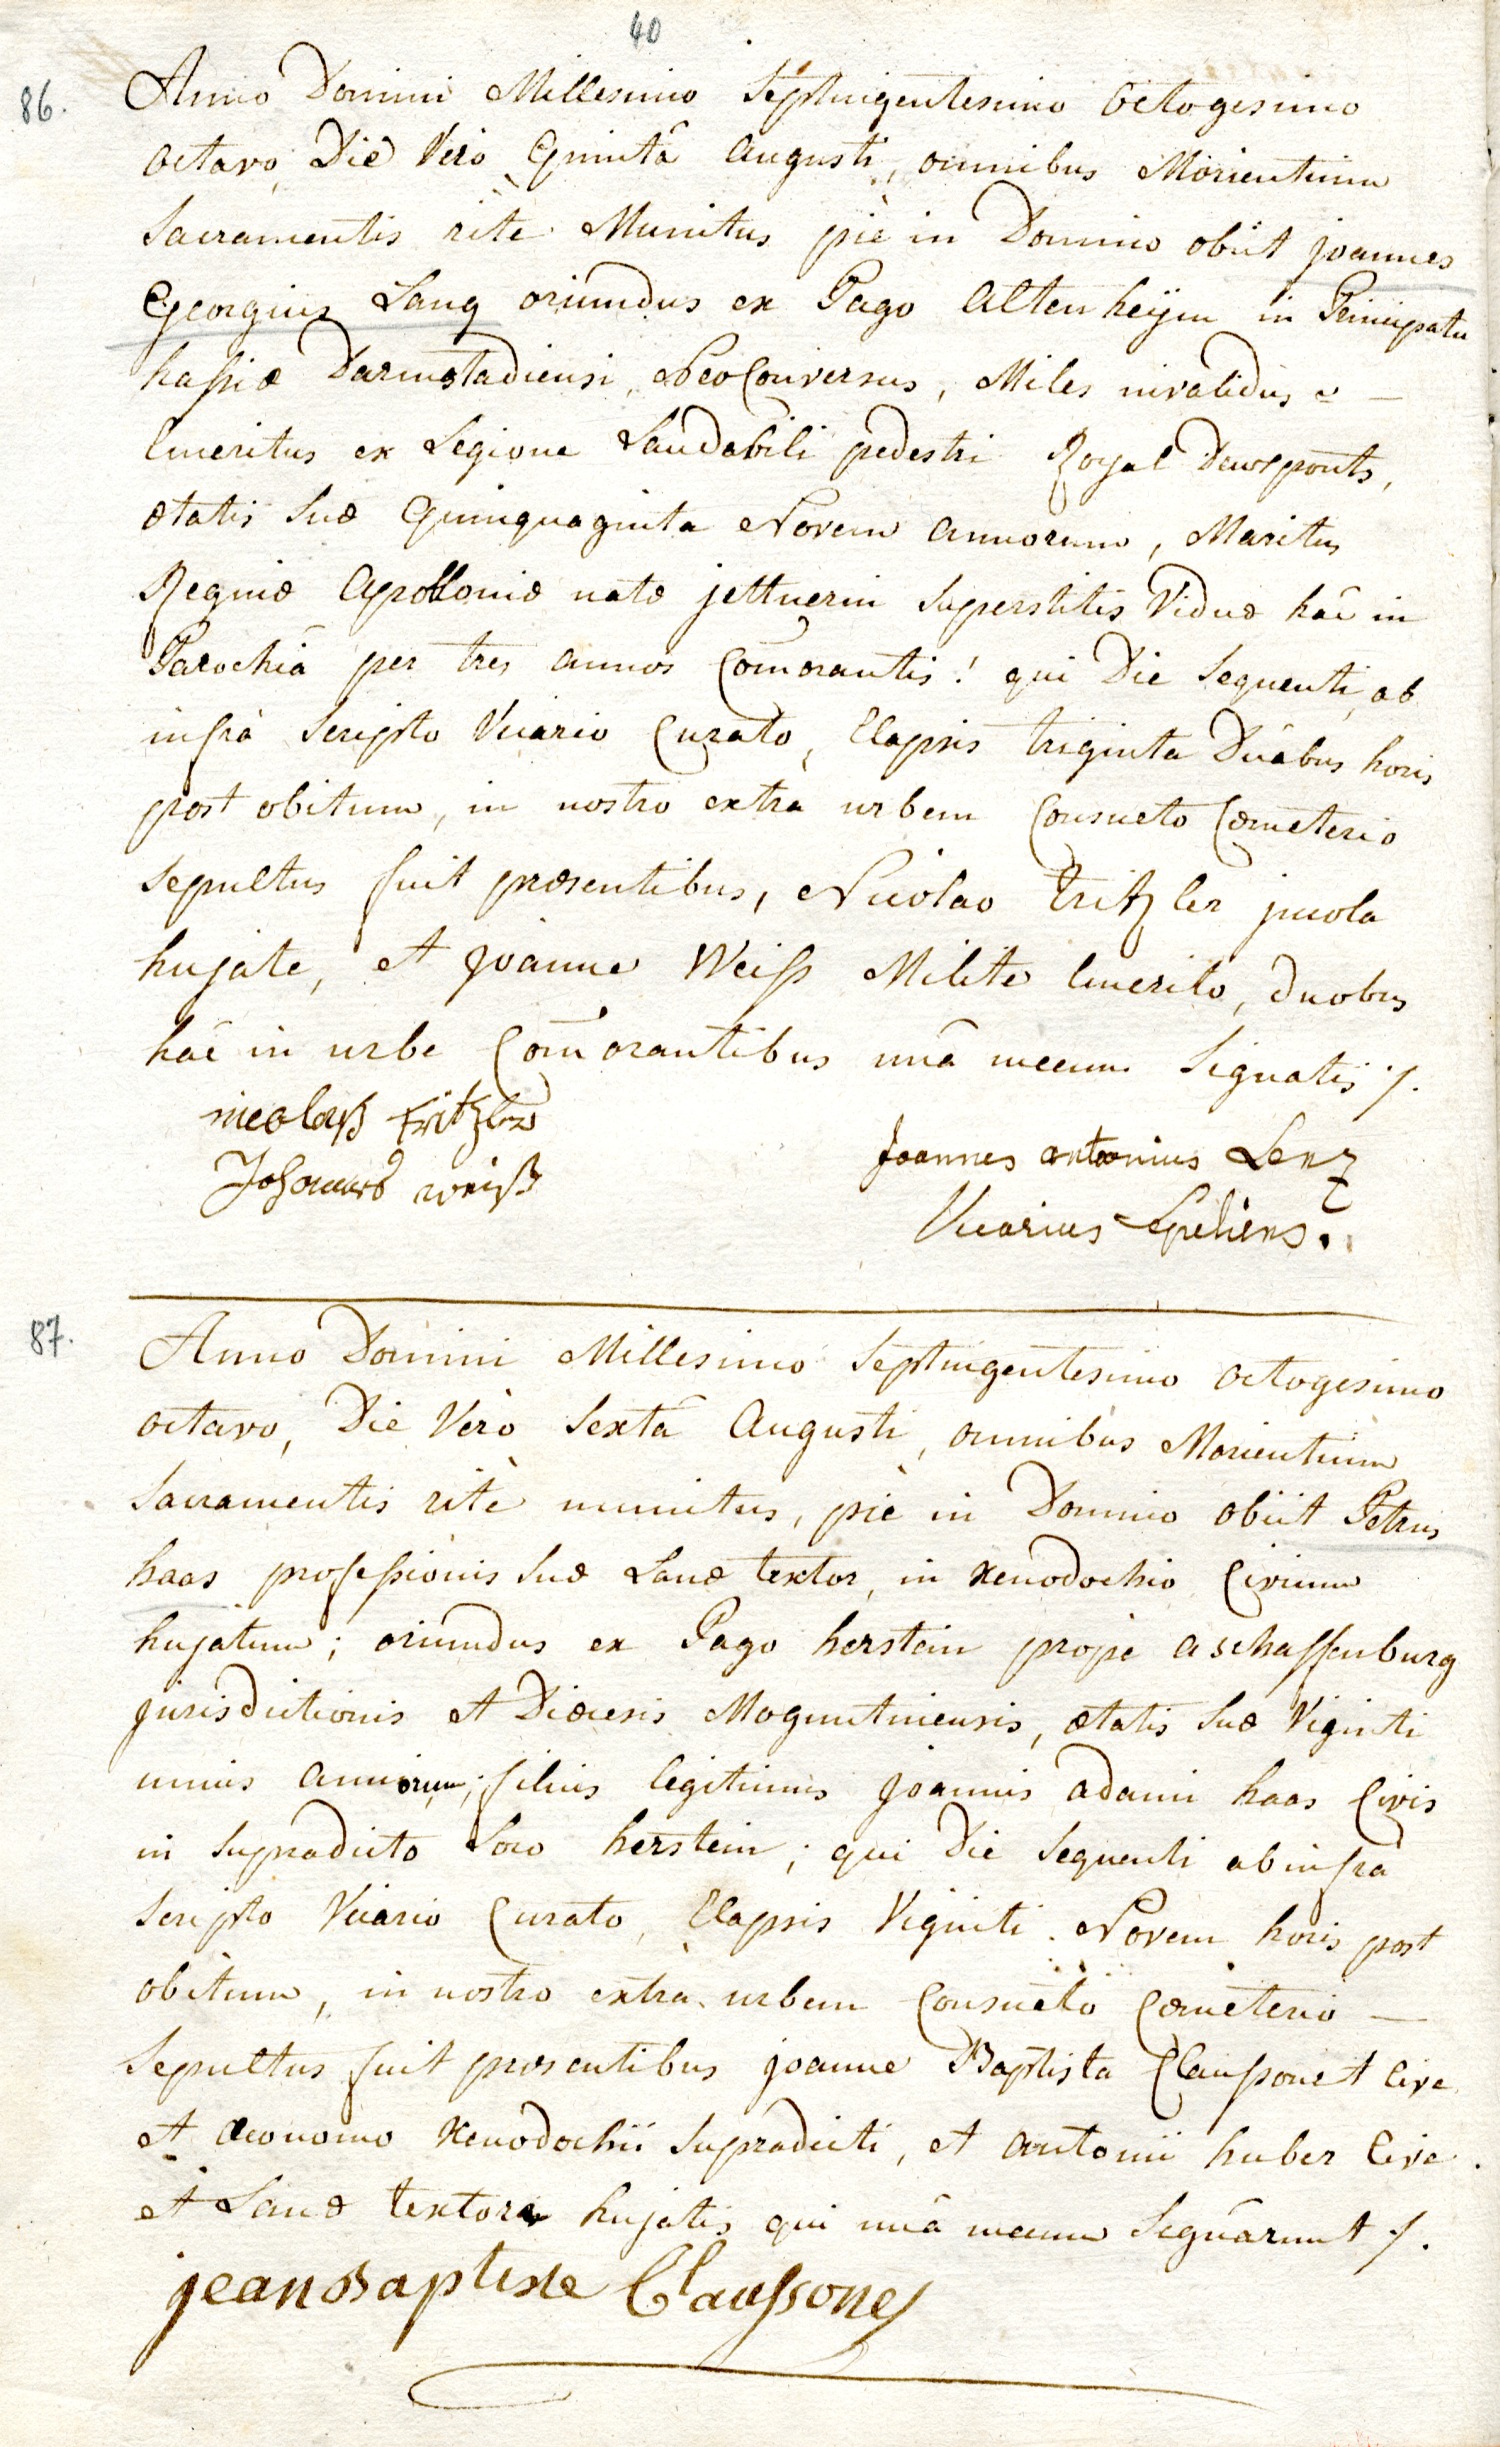 40
86. Anno Domini Millesimo Septuigentesimo octogesimo
octavo, Die Verò Quintâ augusti, omnibus Morientium
Sacramentis ritè Munitus piè in Domino obiit joannes
Georgius Lang oriundus ex Pago altenheÿm in Principatu
hassiæ Darmstadiensi, NeoConversus, Miles invalidus e –
Emeritus ex Legione Laudabili pedestri Royal Deuxponts,
ætatis Suæ Quinquaginta Novem annorum, Maritus
Reginæ Apolloniæ natæ jettnerin Superstitis Viduæ hâc in
Parochiâ per tres annos Com̄orantis! qui Die Sequenti, ab
infrà Scripto Vicario Curato, Elapsis triginta Duabus horis
post obitum, in nostro extrà urbem Consueto Cœmeterio
Sepultus fuit præsentibus, Nicolao tritzler jncola
hujate, et joanne Weiss Milite Emerito, duobus
hâc in urbe Com̄orantibus unâ mecum Signatis ./.
nicolaß tritzler
Johannes weiß
Joannes antonius Lenz
Vicarius
87. Anno Domini Millesimo Septuigentesimo octogesimo
octavo, Die Verò Sextâ Augusti, omnibus Morientium
Sacramentis ritè munitus, piè in Domino obiit Petrus
haas professionis Suæ Lanæ textor, in Xenodochio Civium
hujatum; oriundus ex Pago herstein propè aschaffenburg
jurisdictionis et Diœcesis Moguntinensis, ætatis Suæ Viginti
unius annorum; filius legitimus joannis adami haas Civis
in Supradicto Loco herstein; qui Die Sequenti ab infrà
Scripto Vicario Curato, Elapsis Viginti Novem horis post
obitum, in nostro extrà urbem Consueto Cœmeterio –
Sepultus fuit præsentibus joanne Baptista Claussonet Cive
et œconomo Xenodochii Supradicti, et antonii huber Cive
et Lanæ textore hujatis qui unâ mecum Signârunt ./.
jean Baptiste Claussonet